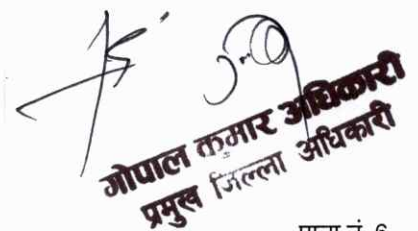 गोपाल कुमार अधिकारी
प्रमुख जिल्ला अधिकारी